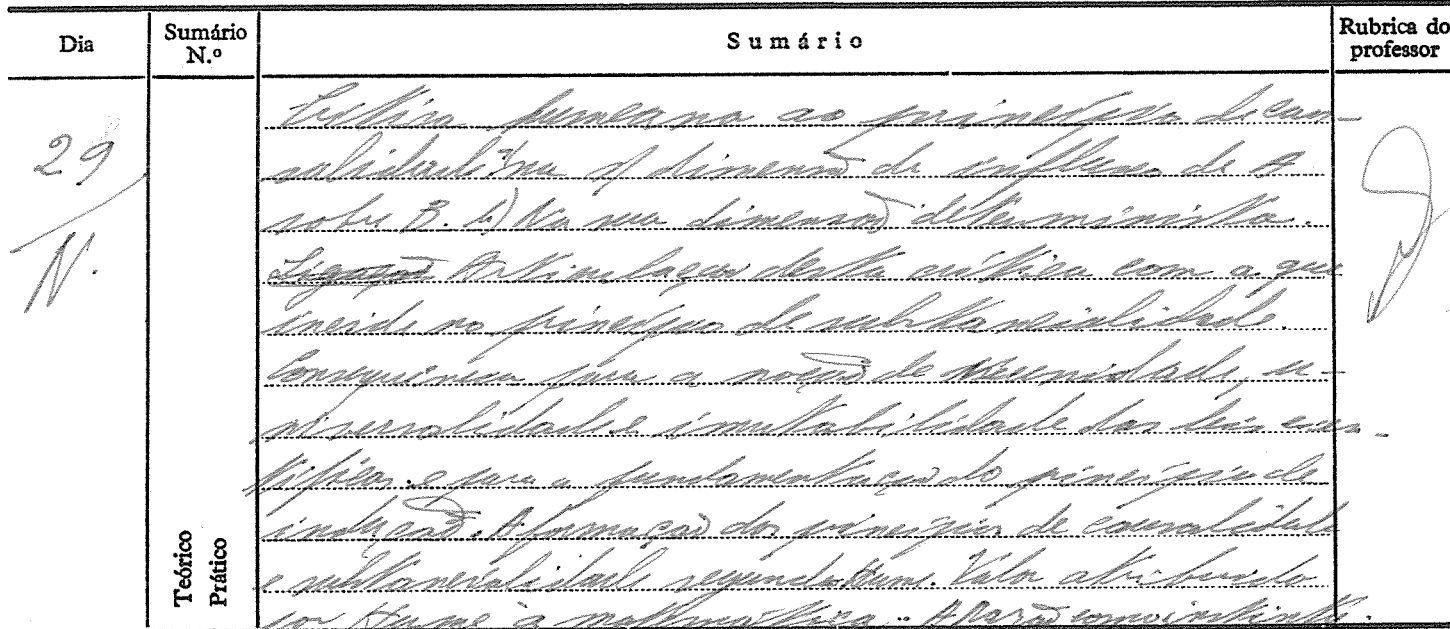 Dia
Sumário N.º
Sumário
Rubrica do professor
29
N.
Teórico
Prático
Crítica humeana ao princípio de cau-
salidade: na s/ dimensão de influxo de A
sobre B. b) Na sua dimensão determinista.
Ligação Articulação desta crítica com a que
incide no princípio de substancialidade.
Consequência para a noção de necessidade, u-
niversalidade e imutabilidade das leis cien-
tíficas e para a fundamentação do princípio de
indução. A formação dos princípios de causalidade
e substancialidade segundo Hume. Valor atribuído
por Hume à matemática. A Razão como instinto.